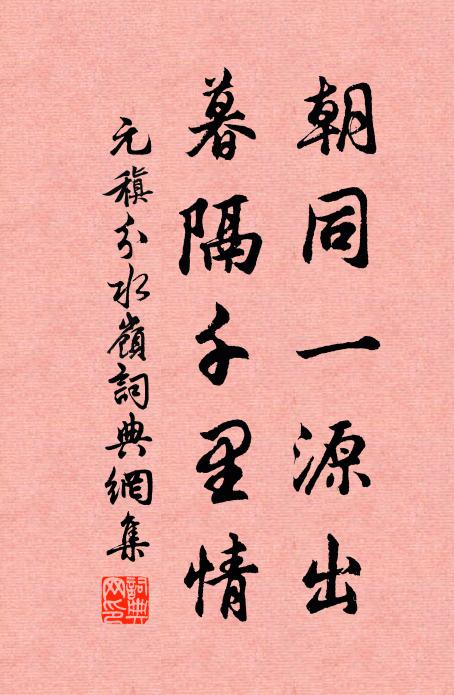 朝同一源出
暮隔千里情
元稹分水嶺詞典網集
詞典網印